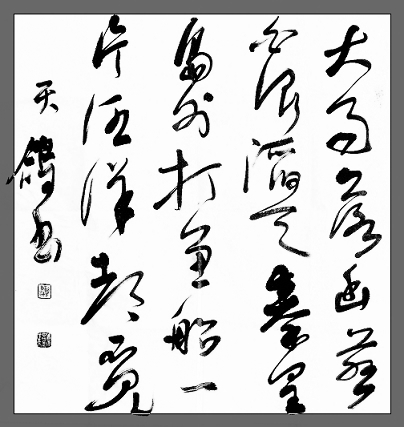 大雨落幽燕
白浪滔天秦皇
岛外打鱼船一
片汪洋都不见
天鸽书